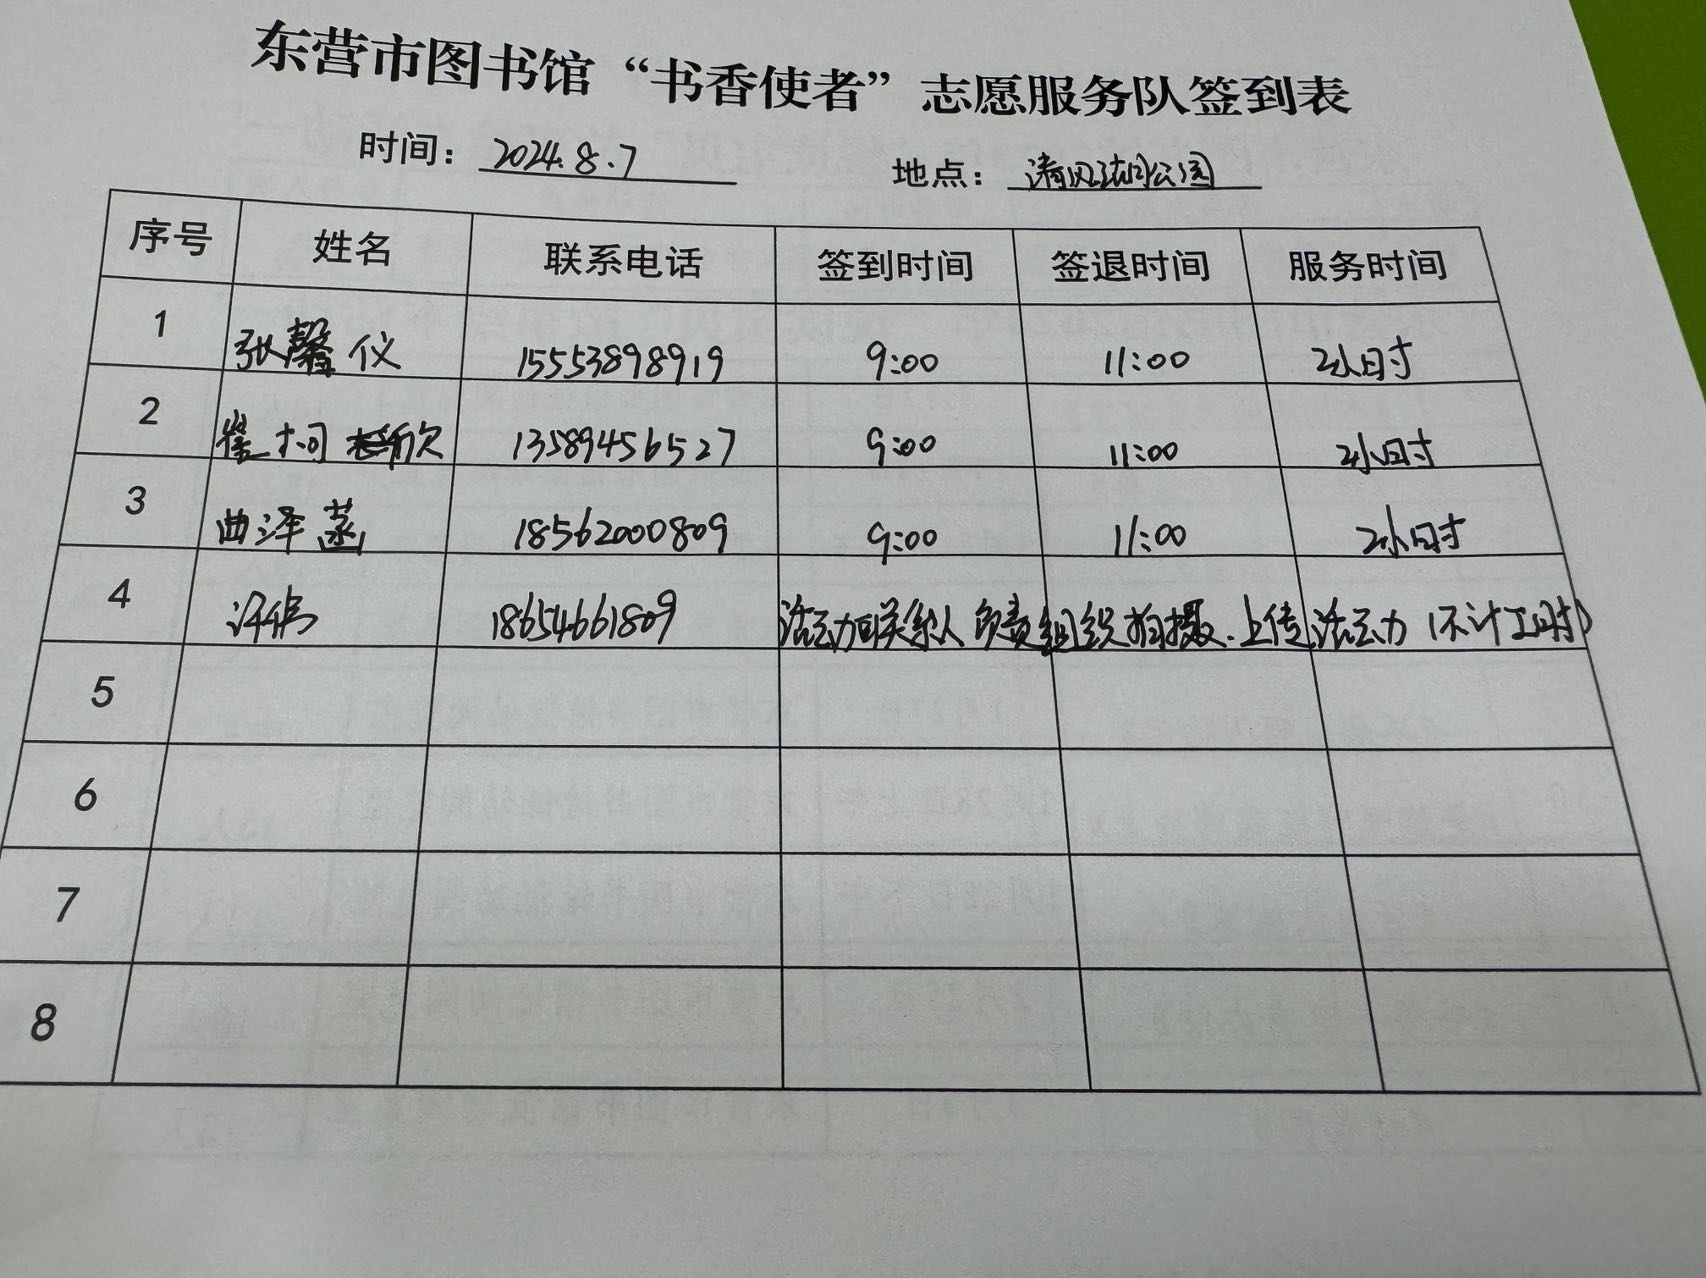 东营市图书馆“书香使者”志愿服务队签到表
时间：2024.8.7 地点：清风湖公园
序号 姓名 联系电话 签到时间 签退时间 服务时间
1 张馨仪 15553898919 9:00 11:00 2小时
2 崔 欣 13589456527 9:00 11:00 2小时
3 曲泽菡 18562000809 9:00 11:00 2小时
4 18654661809 活动联系人 负责组织拍摄.上传活动(不计工时)
5
6
7
8